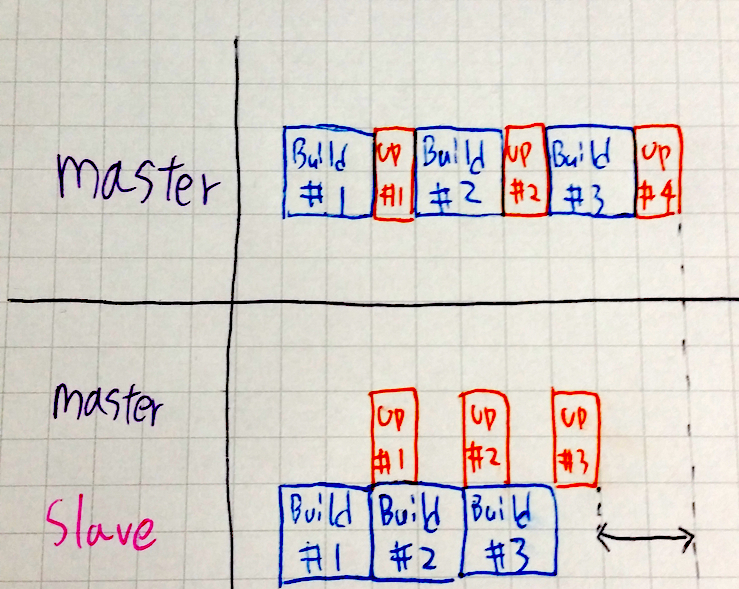 master
Build #1
up #1
Build #2
up #2
Build #3
up #4
master
up #1
up #2
up #3
Slave
Build #1
Build #2
Build #3